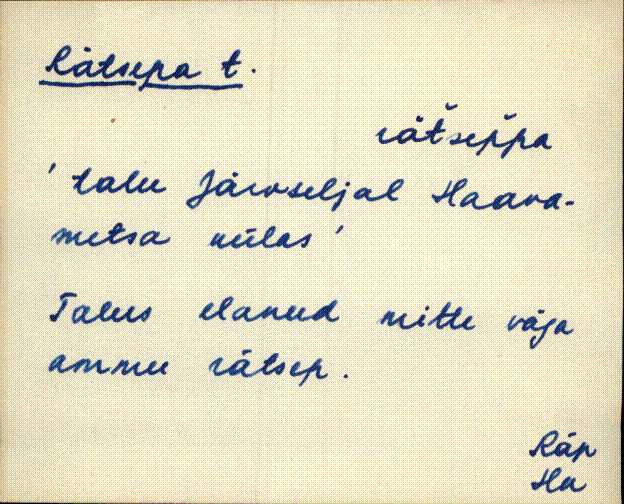 Rätsepa t.
rät̆sep̆pa
' talu Järvseljal Haava-
metsa külas '
Talus elanud mitte väga
ammu rätsep.
Räp
Ha